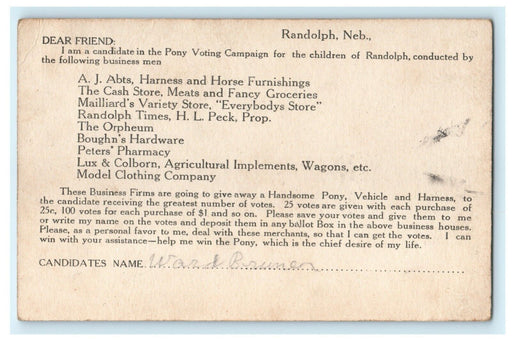 Randolph, Neb.,
DEAR FRIEND:
I am a candidate in the Pony Voting Campaign for the children of Randolph, conducted by
the following business men
A. J. Abts, Harness and Horse Furnishings
The Cash Store, Meats and Fancy Groceries
Mailliard's Variety Store, "Everybodys Store"
Randolph Times, H. L. Peck, Prop.
The Orpheum
Boughn's Hardware
Peters' Pharmacy
Lux & Colborn, Agricultural Implements, Wagons, etc.
Model Clothing Company
These Business Firms are going to give away a Handsome Pony, Vehicle and Harness, to
the candidate receiving the greatest number of votes. 25 votes are given with each purchase of
25c, 100 votes for each purchase of $1 and so on. Please save your votes and give them to me
or write my name on the votes and deposit them in any ballot Box in the above business houses.
Please, as a personal favor to me, deal with these merchants, so that I can get the votes. I can
win with your assistance—help me win the Pony, which is the chief desire of my life.
CANDIDATES NAME Ward Bruner